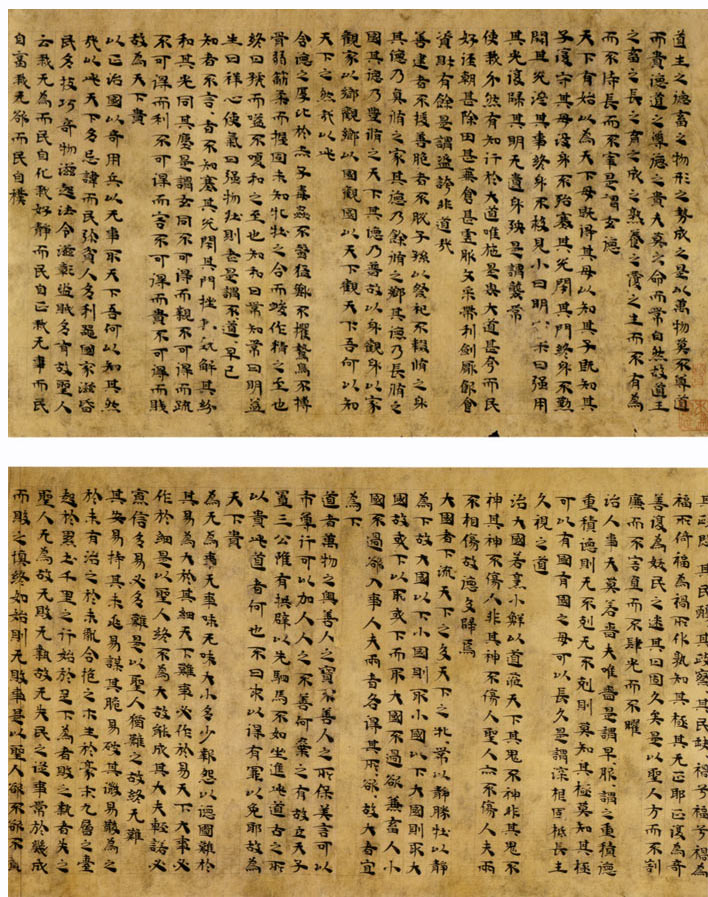 道生之德畜之物形之勢成之是以萬物莫不尊道
而貴德道之尊德之貴夫莫之命而常自然故道生
之畜之長之育之成之熟養之覆之生而不有為
而不恃長而不宰是謂玄德
天下有始以為天下母既得其母以知其子既知其
子復守其母没身不殆塞其兌閉其門終身不勤
開其兌濟其事終身不救見小曰明柔曰强用
其光復歸其明无遺身殃是謂襲常
使我介然有知行於大道唯施是畏大道甚夷而民
好徑朝甚除田甚蕪倉甚虛服文采帶利劍厭飲食
資財有餘是謂盗誇非道哉
善建者不拔善抱者不脫子孫以祭祀不輟脩之身
其德乃真脩之家其德乃餘脩之鄉其德乃長脩之
國其德乃豐脩之天下其德乃普故以身觀身以家
觀家以鄉觀鄉以國觀國以天下觀天下吾何以知
天下之然哉以此
含德之厚比於赤子毒蟲不螫猛獸不攫鳥不搏
骨弱筋柔而握固未知牝牡之合而作精之至也
終日號而嗌不嗄和之至也知和曰常知常曰明益
生曰祥心使氣曰强物壯則老是謂不道早已
知者不言言者不知塞其兌閉其門挫其銳解其紛
和其光同其塵是謂玄同不可得而親不可得而疏
不可得而利不可得而害不可得而貴不可得而賤
故為天下貴
以正治國以奇用兵以无事取天下吾何以知其然
哉以此天下多忌諱而民弥貧人多利器國家滋昏
民多技巧奇物滋起法令滋彰盗賊多有故聖人
云我无為而民自化我好靜而民自正我无事而民
自富我无欲而民自樸
其民醇其政察察其民缺禍兮福
福所倚福為禍所伏孰知其極其无正耶正復為奇
善復為妖民之迷其日固久矣是以聖人方而不割
廉而不害直而不肆光而不曜
治人事天莫若嗇夫唯嗇是謂早服早服謂之重積德
重積德則无不剋无不剋則莫知其極莫知其極
可以有國有國之母可以長久是謂深根固柢長生
久視之道
治大國若烹小鮮以道莅天下其鬼不神非其鬼不
神其神不傷人非其神不傷人聖人亦不傷人夫兩
不相傷故德交歸焉
大國者下流天下之交天下之牝常以靜勝牡以靜
為下故大國以下小國則取小國以下大國則取大
國故或下以取或下而取大國不過欲兼畜人小
國不過欲入事人夫兩者各得其所欲故大者宜
為下
道者萬物之奧善人之寶不善人之所保美言可以
市尊行可以加人人之不善何棄之有故立天子
置三公雖有拱璧以先駟馬不如坐進此道古之所
以貴此道者何也不曰求以得有罪以免耶故為
天下貴
為无為事无事味无味大小多少報怨以德圖難於
其易為大於其細天下難事必作於易天下大事必
作於細是以聖人終不為大故能成其大夫輕諾必
寡信多易必多難是以聖人猶難之故終无難
其安易持其未兆易謀其脆易破其微易散為之
於未有治之於未亂合抱之木生於豪末九層之臺
起於累土千里之行始於足下為者敗之執者失之
聖人无為故无敗无執故无失民之從事常於幾成
而敗之慎終如始則无敗事是以聖人欲不欲不